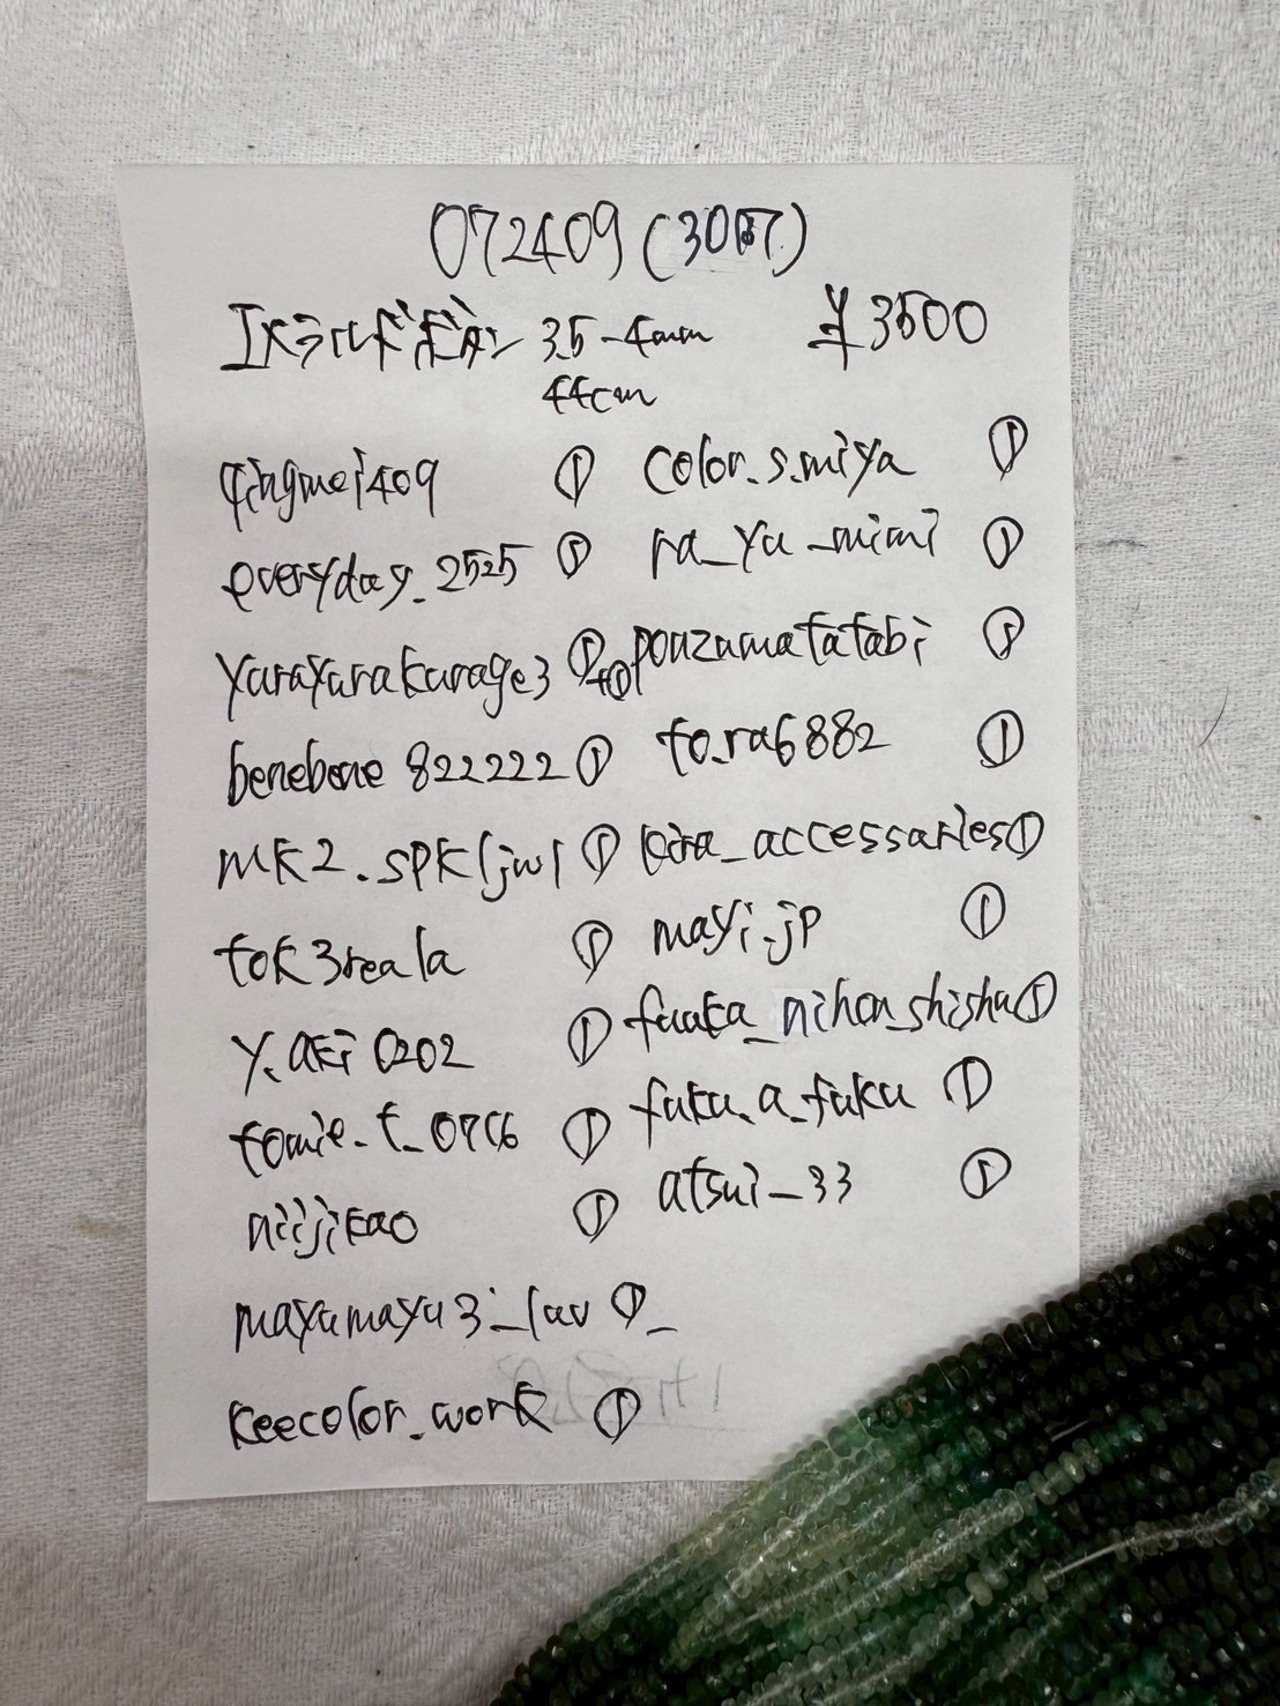 072409(30码)
エメラルドボタン 3.5-4mm ¥3500
44cm
qingmei409 ①
everyday_2525 ①
yurayurakurage3 ①+①
benebene822222 ①
mk2.spkljwl ①
tok3reala ①
y.aki0202 ①
tomie_t_0766 ①
niijikao ①
mayumayu3_luv ①
keecolor_work ①
color.s.miya ①
ra_yu_mimi ①
ponzumatatabi ①
to.ra6882 ①
kira_accessaries ①
mayi.jp ①
fuuka_nihon_shishu ①
fuku.a_fuku ①
atsui_33 ①